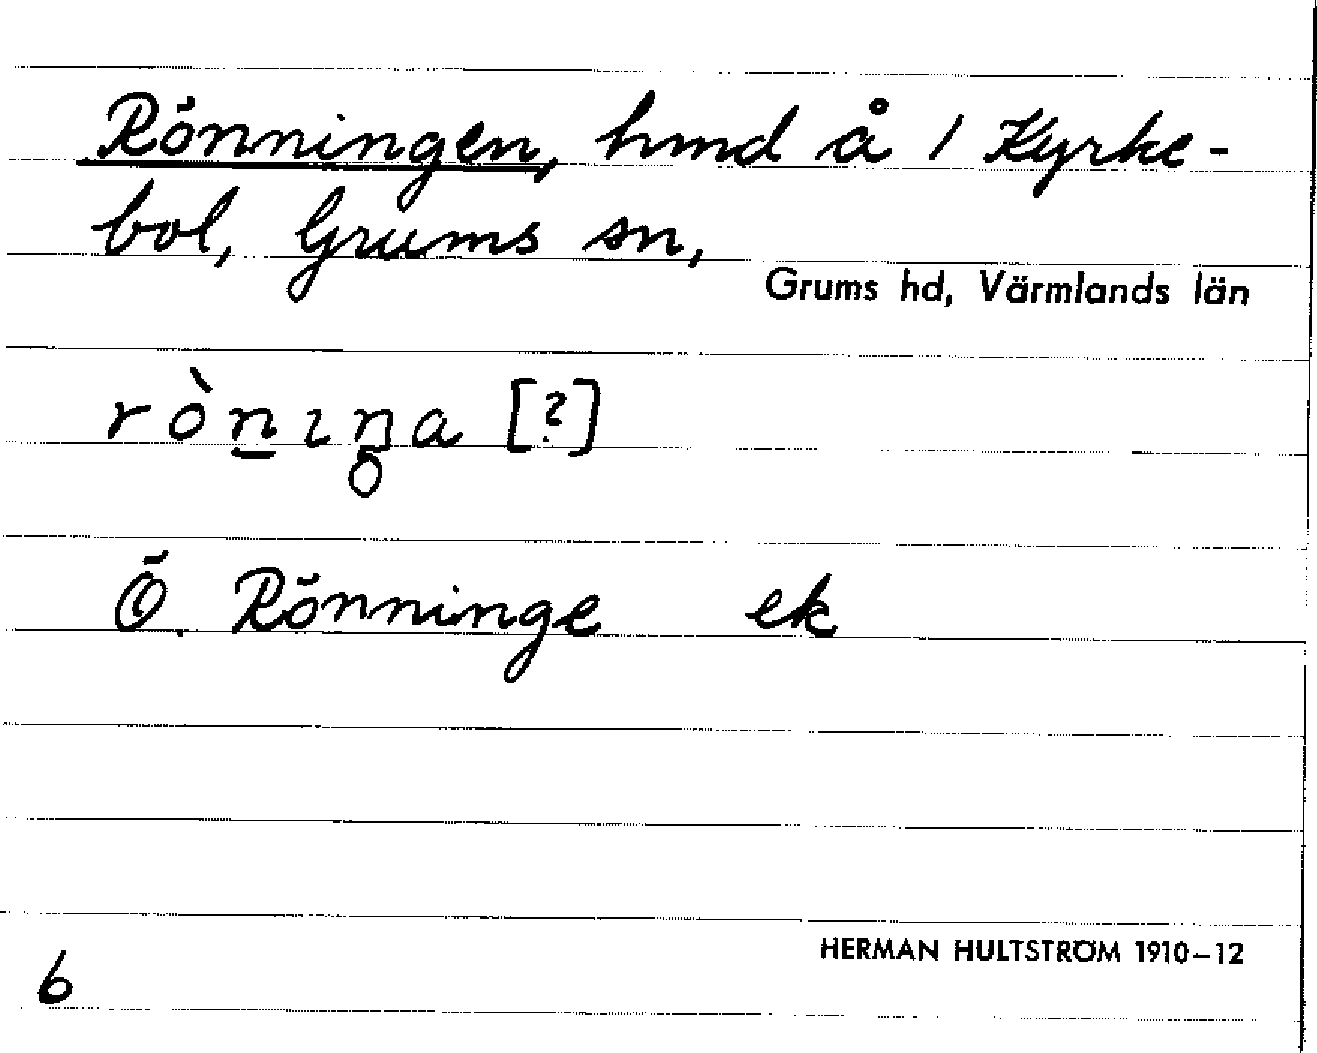 Rönningen, hmd å 1 Kyrke-
bol, Grums sn,
Grums hd, Värmlands län
rònıŋa [?]
Ö. Rönninge ek
HERMAN HULTSTRÖM 1910–12
6